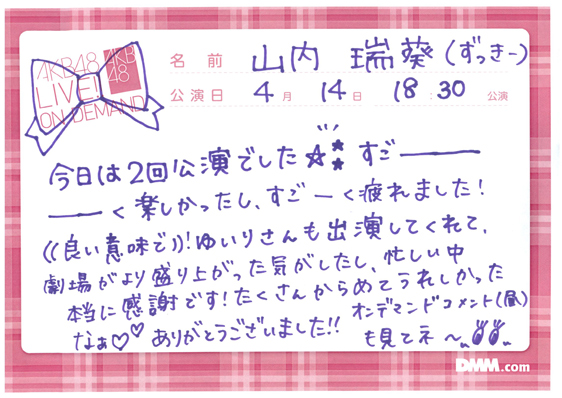 AKB48
LIVE!!
ON DEMAND
AKB
48
名前 山内 瑞葵(ずっきー)
公演日 4月 14日 18:30 公演
今日は2回公演でした☆ すごー
ーく楽しかったし、すごーく疲れました!
((良い意味で))!ゆいりさんも出演してくれて、
劇場がより盛り上がった気がしたし、忙しい中
本当に感謝です!たくさんからめてうれしかった
なぁ♡♡ ありがとうございました!!
オンデマンドコメント(昼)
も見てネ〜
DMM.com